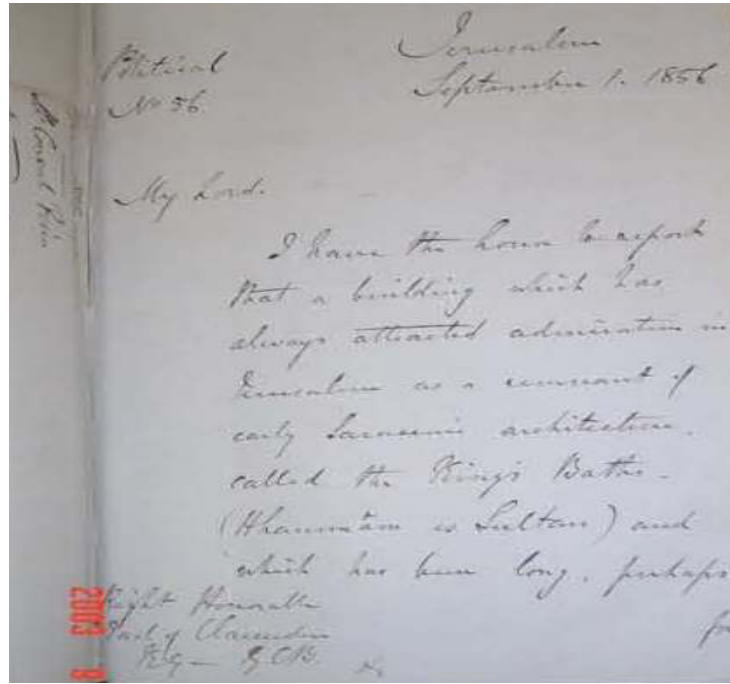 Political
No 56.
Jerusalem
September 1. 1856
My Lord.
I have the honor to report
that a building which has
always attracted admiration in
Jerusalem as a remnant of
early Saracenic architecture,
called the King's Baths.
(Hhammâm es Sultan) and
which has been long, perhaps
Right Honorable
Earl of Clarendon
K.G — G.C.B.
2003 8